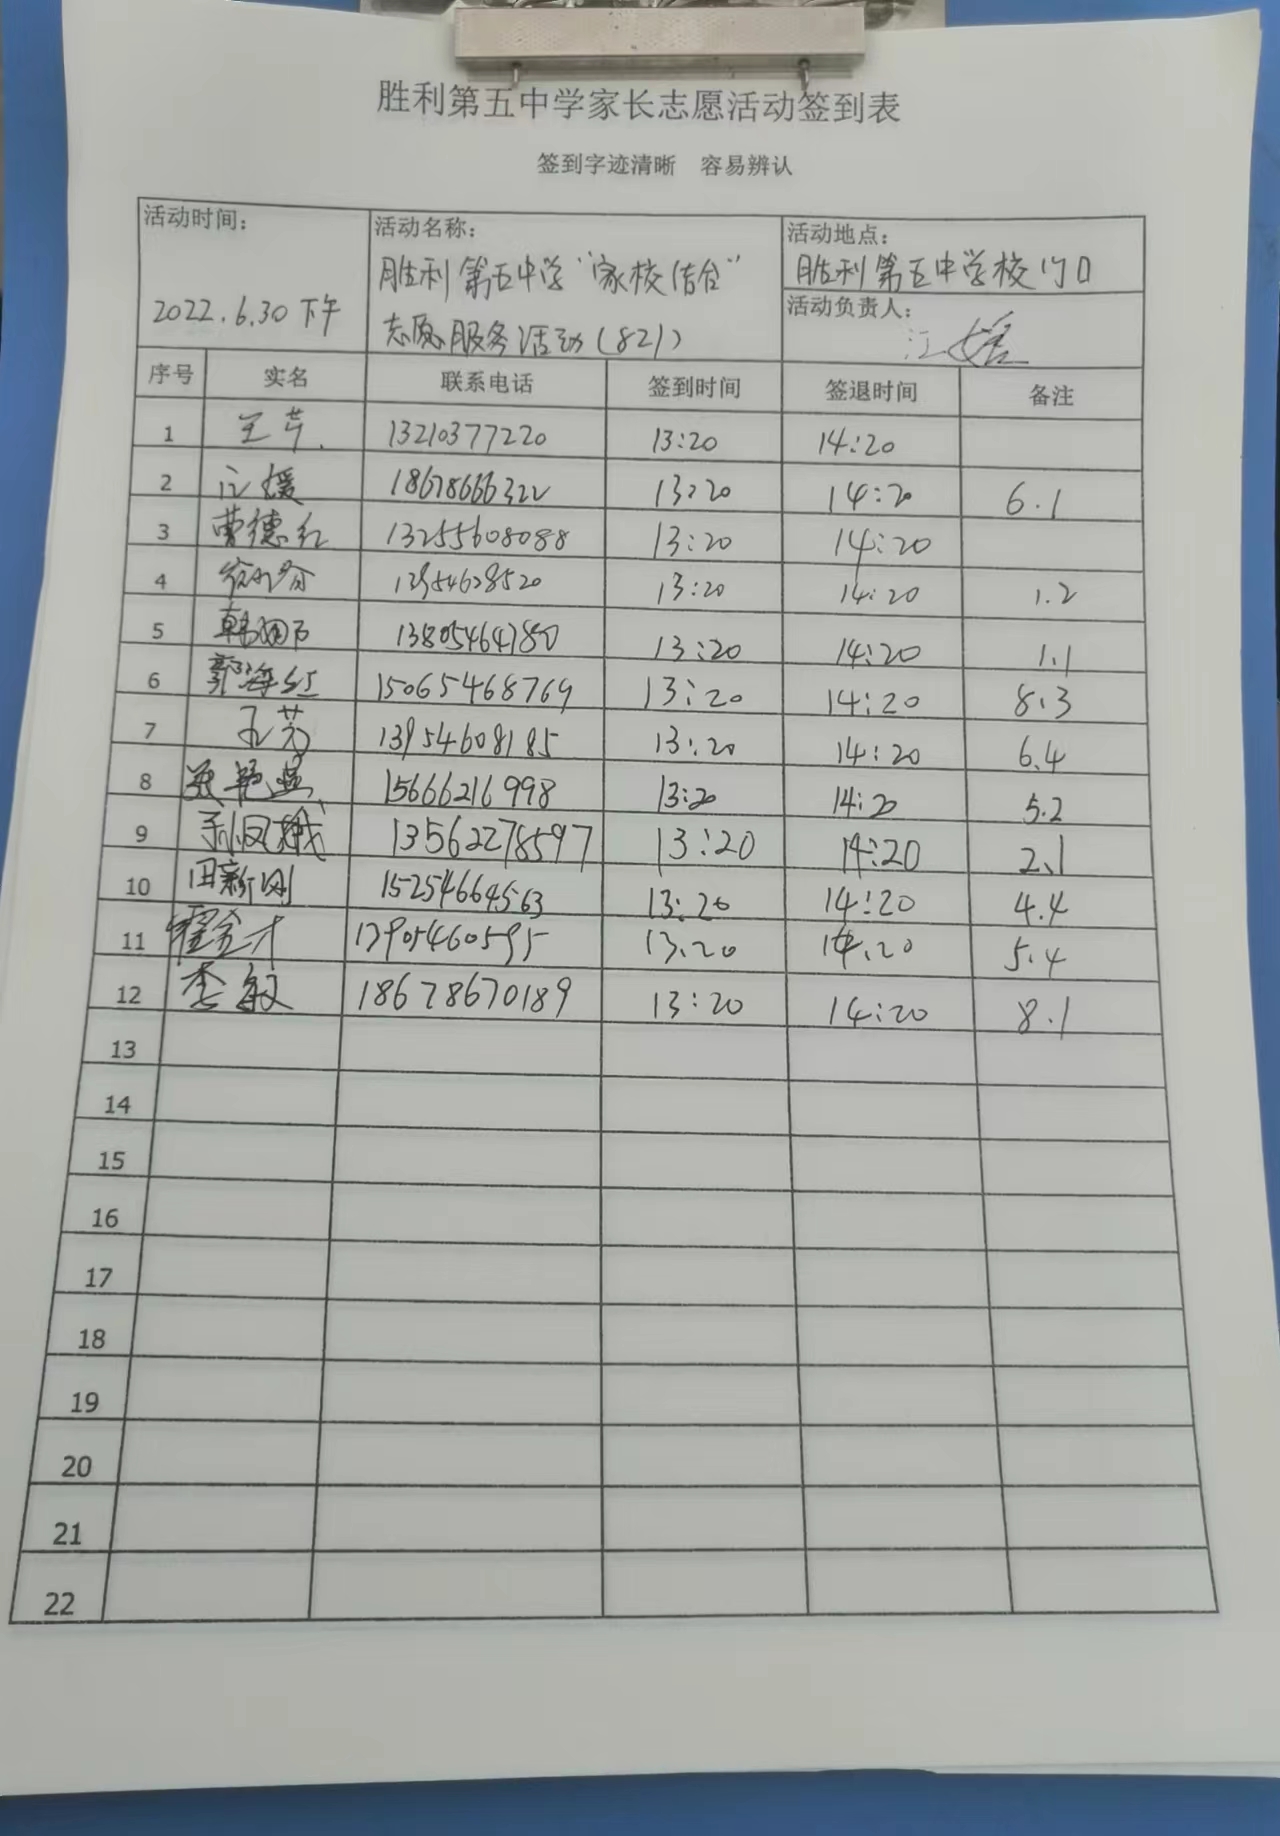 胜利第五中学家长志愿活动签到表
签到字迹清晰 容易辨认
活动时间:
2022.6.30下午
活动名称:
胜利第五中学"家校结合"
志愿服务活动(821)
活动地点:
胜利第五中学校门口
活动负责人:
江媛
序号 实名 联系电话 签到时间 签退时间 备注
1 王芹 13210377220 13:20 14:20
2 江媛 18678666322 13:20 14:20 6.1
3 曹德红 13255608088 13:20 14:20
4 13954628520 13:20 14:20 1.2
5 13805464780 13:20 14:20 1.1
6 郭海红 15065468769 13:20 14:20 8.3
7 孔芳 13954608185 13:20 14:20 6.4
8 15666216998 13:20 14:20 5.2
9 13562278597 13:20 14:20 2.1
10 田新刚 15254664563 13:20 14:20 4.4
11 霍金才 13905460595 13:20 14:20 5.4
12 李敏 18678670189 13:20 14:20 8.1
13
14
15
16
17
18
19
20
21
22